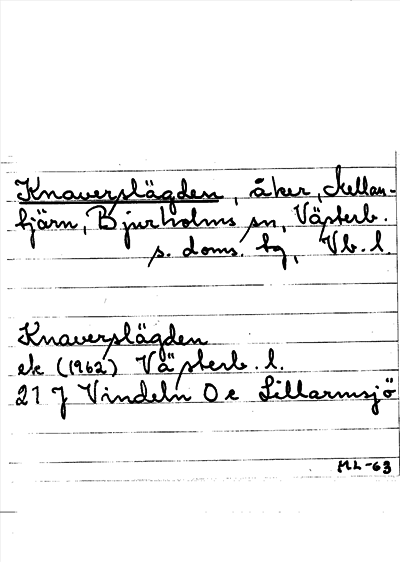 Knaverslägden, åker, Mellan-
tjärn, Bjurholms sn, Västerb.
s. doms. tg, Vb. l.
Knaverslägden
ek (1962) Västerb. l.
21 J Vindeln 0 e Lillarmsjö
ML-63